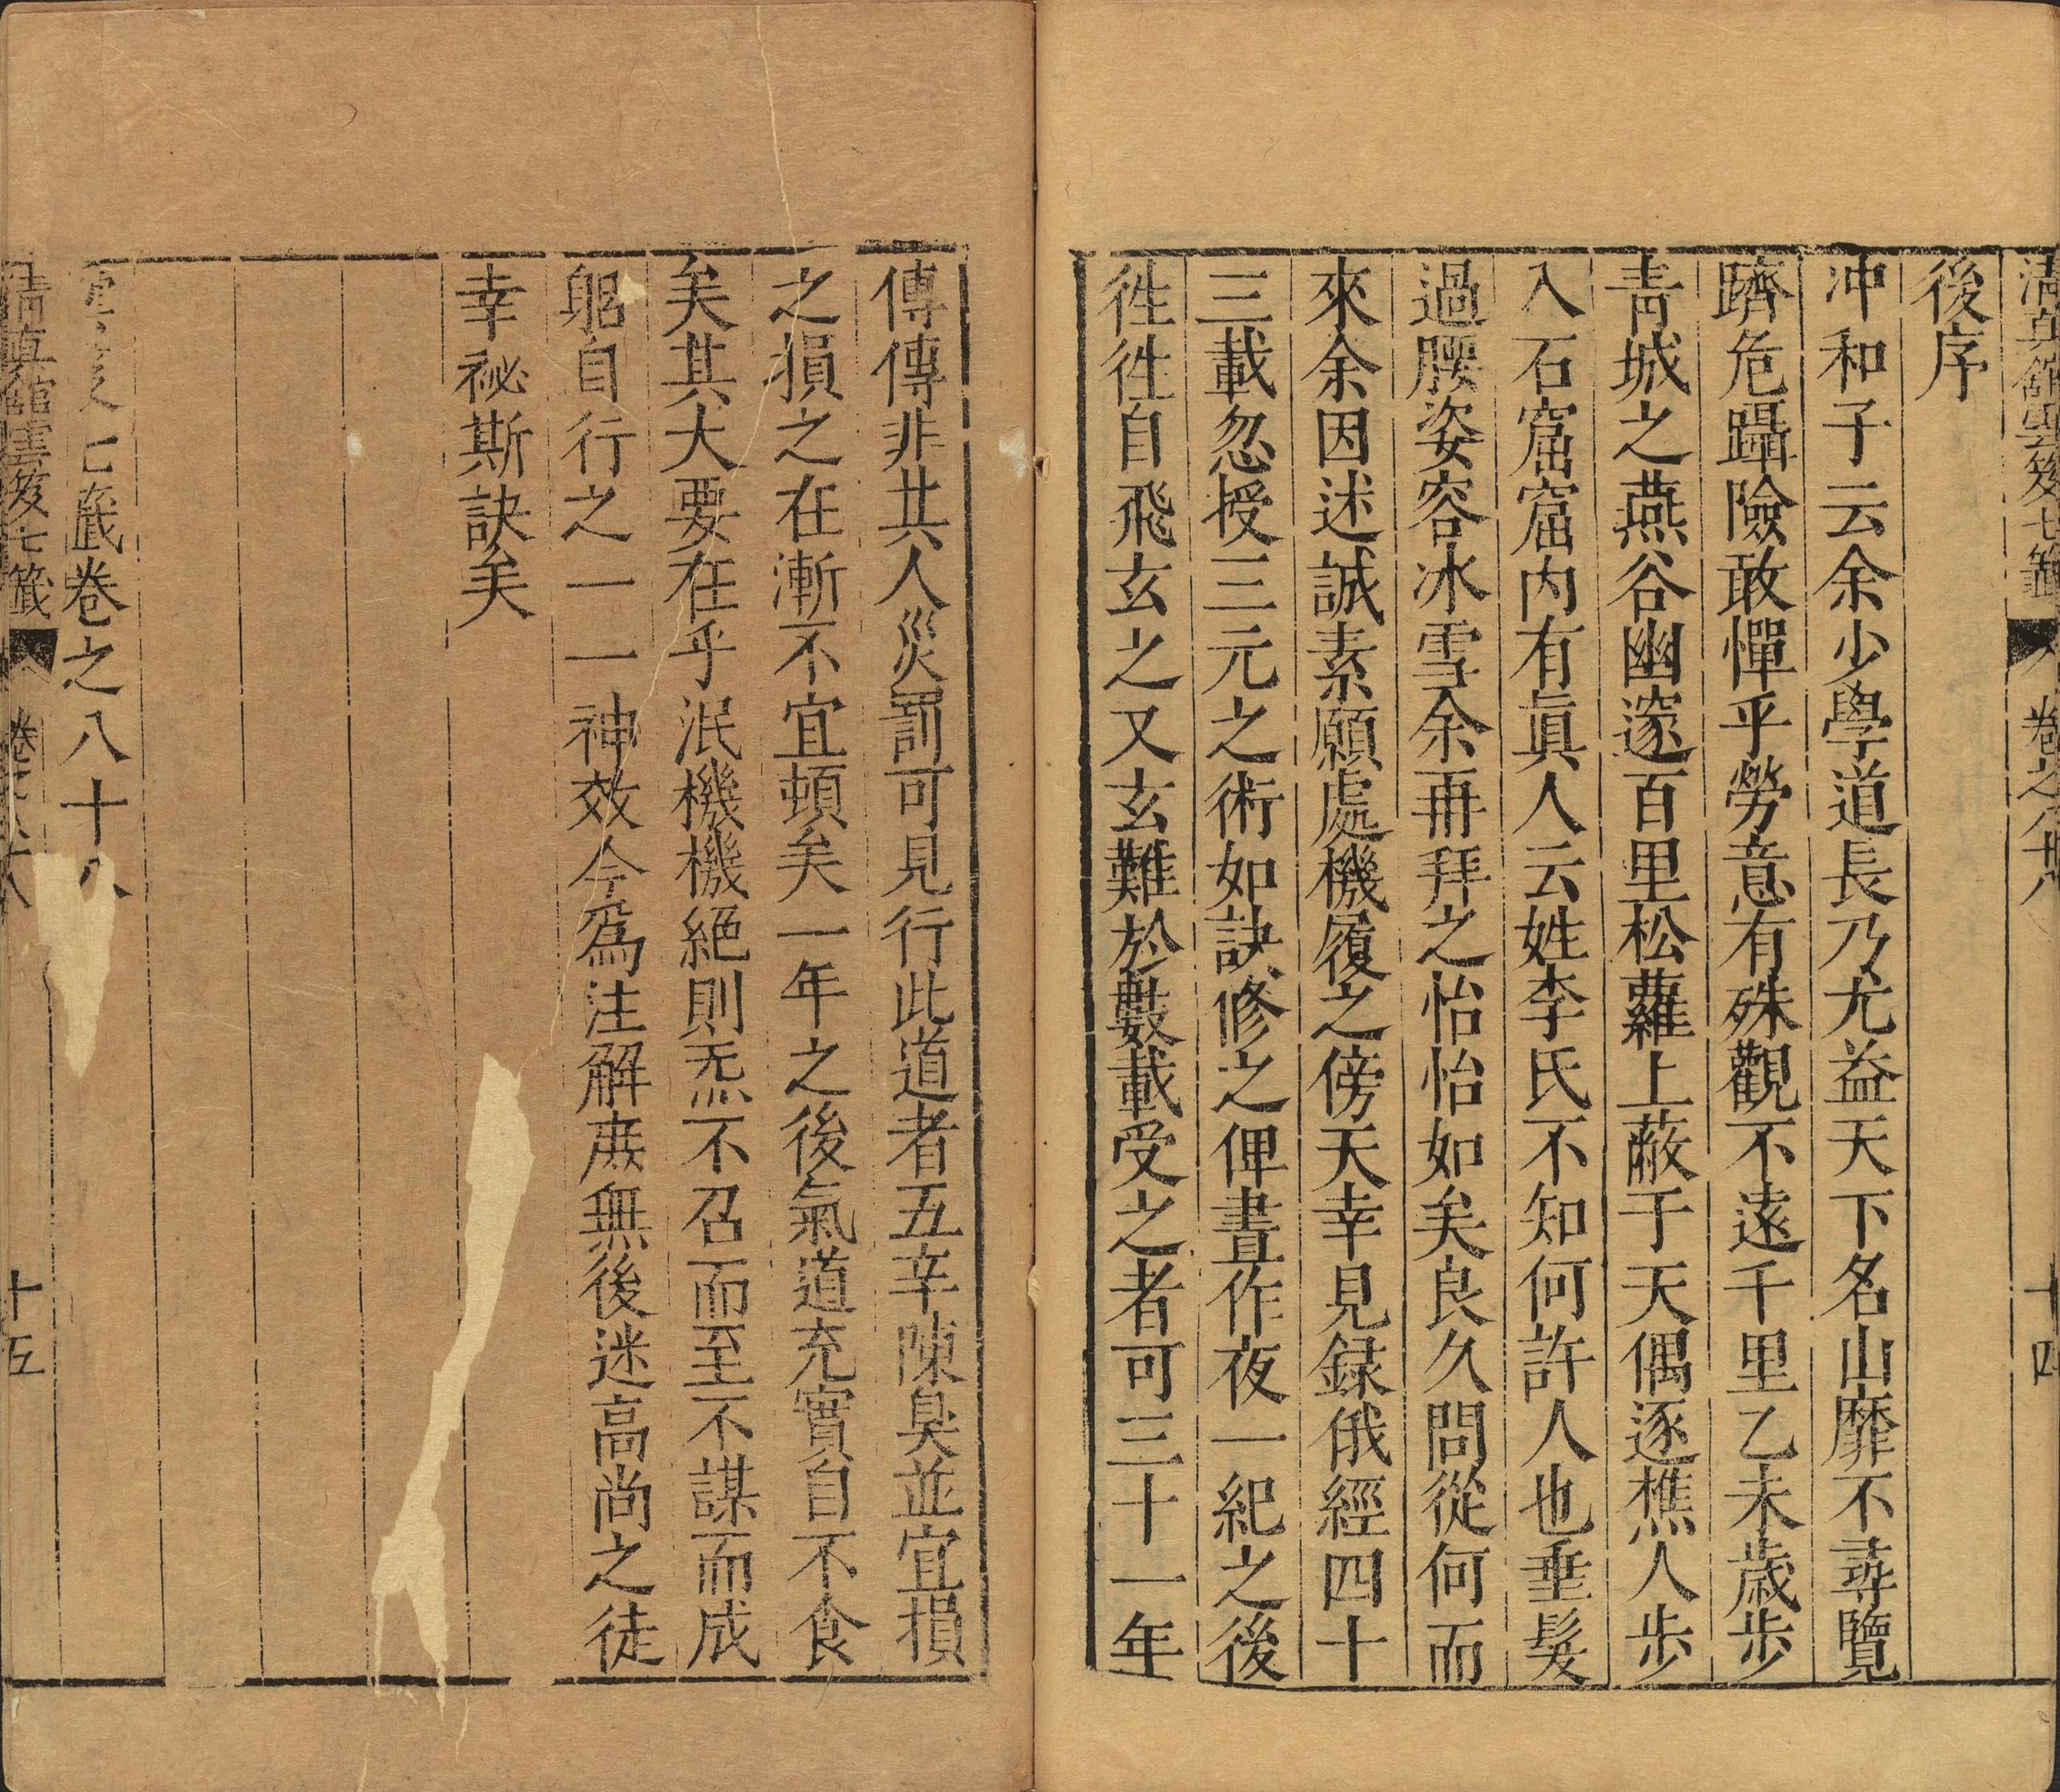 清真舘雲笈七籤 卷之八十八 十四
後序
冲和子云余少學道長乃尤益天下名山靡不尋覽
躋危躡險敢憚乎勞意有殊觀不遠千里乙未歲步
靑城之燕谷幽邃百里松蘿上蔽于天偶逐樵人步
入石窟窟内有眞人云姓李氏不知何許人也垂髮
過腰姿容冰雪余再拜之怡怡如矣良久問從何而
來余因述誠素願處機履之傍天幸見録俄經四十
三載忽授三元之術如訣修之俾晝作夜一紀之後
徃徃自飛玄之又玄難於數載受之者可三十一年
傳傳非其人災罰可見行此道者五辛陳臭並宜損
之損之在漸不宜頓矣一年之後氣道充實自不食
矣其大要在乎泯機機絕則炁不召而至不謀而成
躳自行之一一神效今爲注解庶無後迷高尚之徒
幸祕斯訣矣
雲笈七籤卷之八十八
清真舘雲笈七籤 卷之八十八 十五